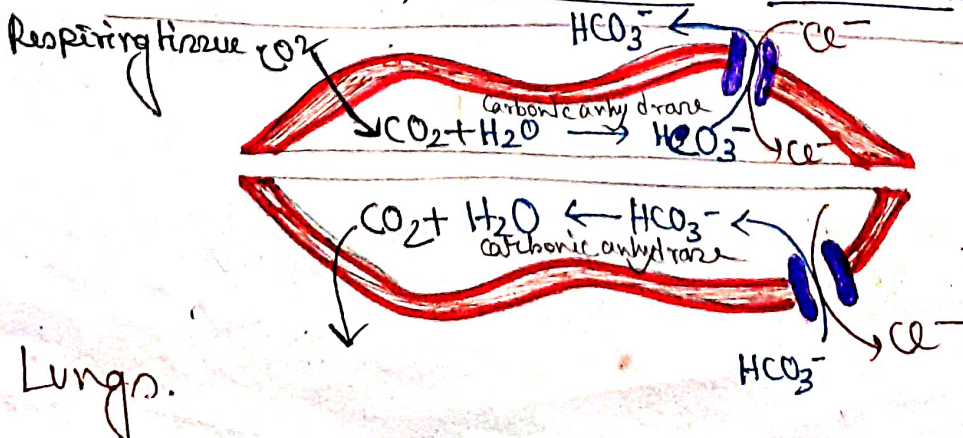 HCO₃⁻ Cl⁻
Respiring tissue CO₂
carbonic anhydrase
CO₂+H₂O → HCO₃⁻ Cl⁻
CO₂+ H₂O ← HCO₃⁻
carbonic anhydrase
Cl⁻
HCO₃⁻
Lungs.